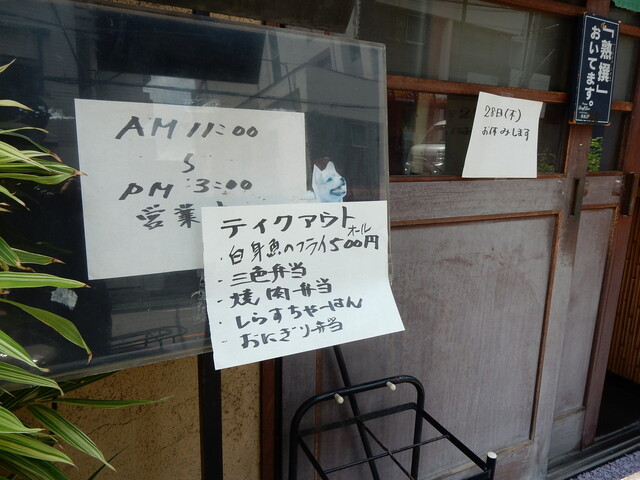 AM 11:00
〜
PM 3:00
営業
テイクアウト
オール
・白身魚のフライ500円
・三色弁当
・焼肉弁当
・しらすちゃーはん
・おにぎり弁当
28日(木)
お休みします
「熟撰」
おいてます。